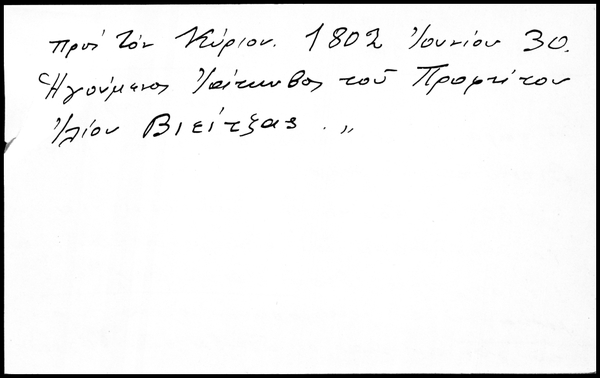 πρός τόν Κύριον. 1802 Ἰουνίου 30.
Ἡγούμενος Ἰάκωβος τοῦ Προφήτου
Ἠλίου Βιείτζας . „